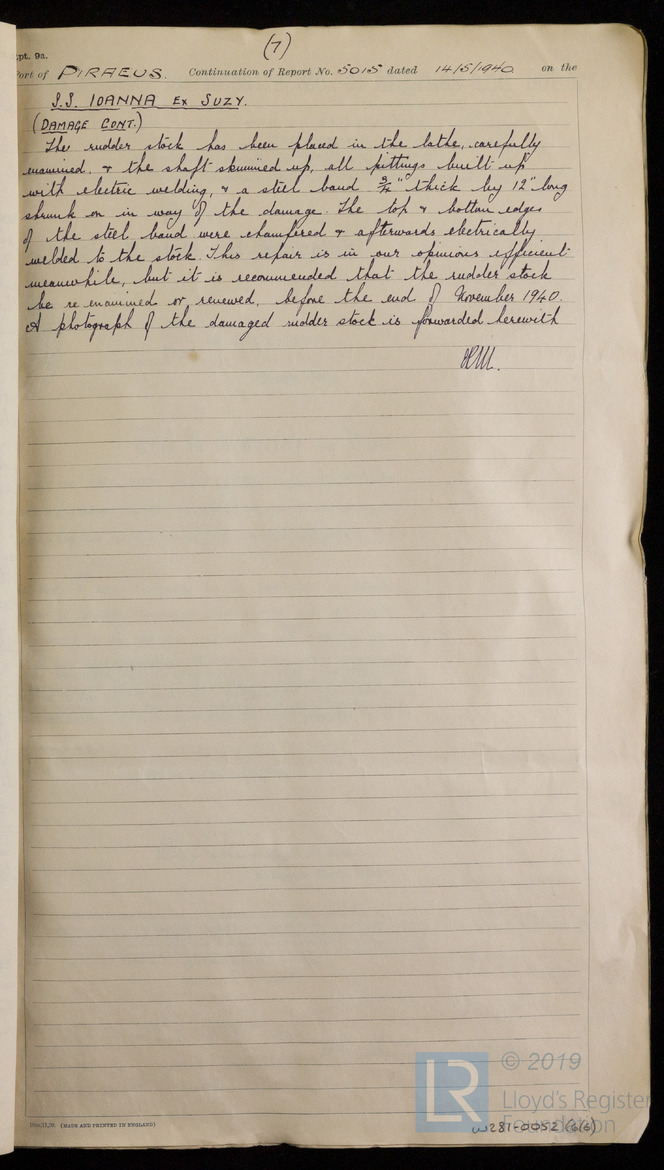 (7)
Rpt. 9a.
Port of PIRAEUS. Continuation of Report No. 5015 dated 14/5/1940 on the
S.S. IOANNA EX SUZY.
(DAMAGE CONT.)
The rudder stock has been placed in the lathe, carefully
examined, & the shaft skimmed up, all pittings built up
with electric welding, & a steel band 3/4" thick by 12" long
shrunk on in way of the damage. The top & bottom edges
of the steel band were chamfered & afterwards electrically
welded to the stock. This repair is in our opinion efficient
meanwhile, but it is recommended that the rudder stock
be re examined or renewed, before the end of November 1940.
A photograph of the damaged rudder stock is forwarded herewith
(MADE AND PRINTED IN ENGLAND)
LR
© 2019
Lloyd's Register
Foundation
W281-0052 (6/6)